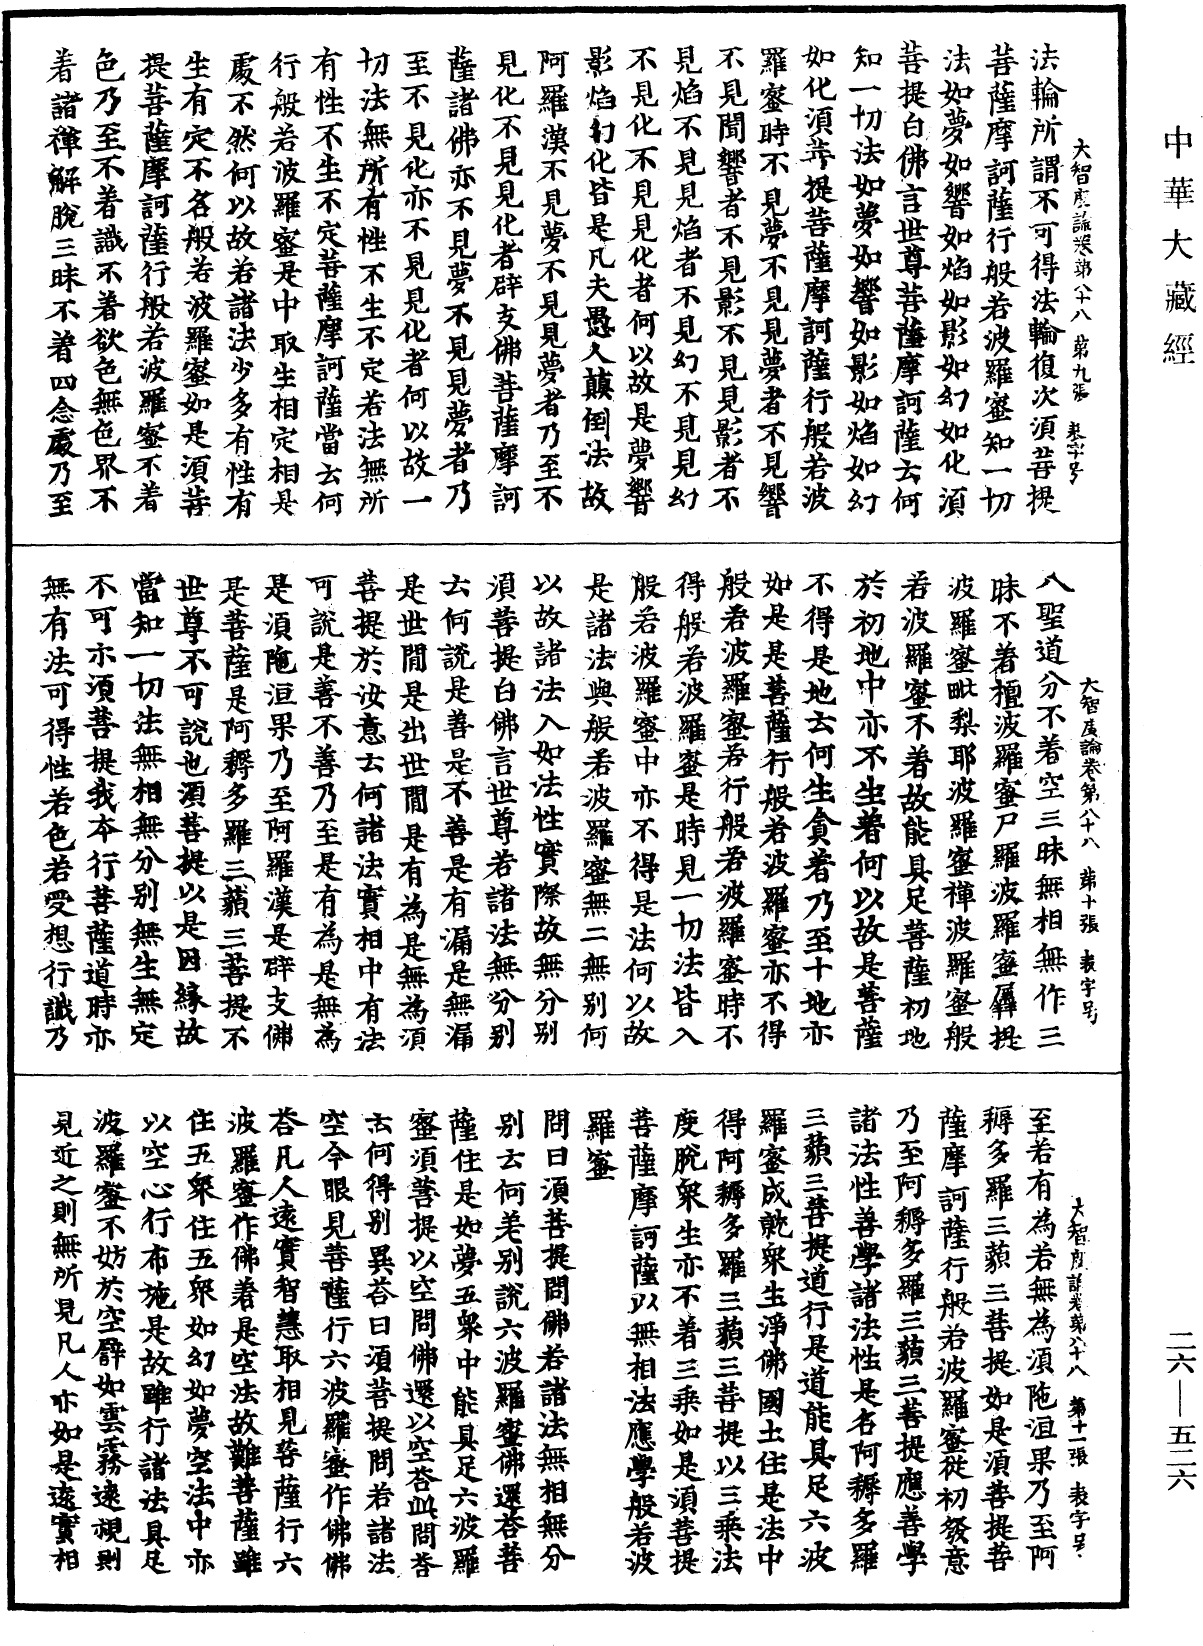 中華大藏經
大智度論卷第八十八 第九張 表字号
法輪所謂不可得法輪復次須菩提
菩薩摩訶薩行般若波羅蜜知一切
法如夢如響如焰如影如幻如化須
菩提白佛言世尊菩薩摩訶薩云何
知一切法如夢如響如影如焰如幻
如化須菩提菩薩摩訶薩行般若波
羅蜜時不見夢不見見夢者不見響
不見聞響者不見影不見見影者不
見焰不見見焰者不見幻不見見幻
不見化不見見化者何以故是夢響
影焰幻化皆是凡夫愚人顛倒法故
阿羅漢不見夢不見見夢者乃至不
見化不見見化者辟支佛菩薩摩訶
薩諸佛亦不見夢不見見夢者乃
至不見化亦不見見化者何以故一
切法無所有性不生不定若法無所
有性不生不定菩薩摩訶薩當云何
行般若波羅蜜是中取生相定相是
處不然何以故若諸法少多有性有
生有定不名般若波羅蜜如是須菩
提菩薩摩訶薩行般若波羅蜜不着
色乃至不着識不着欲色無色界不
着諸禪解脫三昧不着四念處乃至
大智度論卷第八十八 第十張 表字号
八聖道分不着空三昧無相無作三
昧不着檀波羅蜜尸羅波羅蜜羼提
波羅蜜毗梨耶波羅蜜禪波羅蜜般
若波羅蜜不着故能具足菩薩初地
於初地中亦不生着何以故是菩薩
不得是地云何生貪着乃至十地亦
如是是菩薩行般若波羅蜜亦不得
般若波羅蜜若行般若波羅蜜時不
得般若波羅蜜是時見一切法皆入
般若波羅蜜中亦不得是法何以故
是諸法與般若波羅蜜無二無別何
以故諸法入如法性實際故無分別
須菩提白佛言世尊若諸法無分別
云何說是善是不善是有漏是無漏
是世間是出世間是有為是無為須
菩提於汝意云何諸法實相中有法
可說是善不善乃至是有為是無為
是須陁洹果乃至阿羅漢是辟支佛
是菩薩是阿耨多羅三藐三菩提不
世尊不可說也須菩提以是因緣故
當知一切法無相無分別無生無定
不可示須菩提我本行菩薩道時亦
無有法可得性若色若受想行識乃
大智度論卷第八十八 第十一張 表字号
至若有為若無為須陁洹果乃至阿
耨多羅三藐三菩提如是須菩提菩
薩摩訶薩行般若波羅蜜從初發意
乃至阿耨多羅三藐三菩提應善學
諸法性善學諸法性是名阿耨多羅
三藐三菩提道行是道能具足六波
羅蜜成就眾生淨佛國土住是法中
得阿耨多羅三藐三菩提以三乘法
度脫眾生亦不着三乘如是須菩提
菩薩摩訶薩以無相法應學般若波
羅蜜
問曰須菩提問佛若諸法無相無分
別云何差別說六波羅蜜佛還荅菩
薩住是如夢五眾中能具足六波羅
蜜須菩提以空問佛還以空荅此問荅
云何得別異荅曰須菩提問若諸法
空今眼見菩薩行六波羅蜜作佛佛
荅凡人遠實智慧取相見菩薩行六
波羅蜜作佛着是空法故難菩薩雖
住五眾住五眾如幻如夢空法中亦
以空心行布施是故雖行諸法具足
波羅蜜不妨於空譬如雲霧遠視則
見近之則無所見凡人亦如是遠實相
二六—五二六